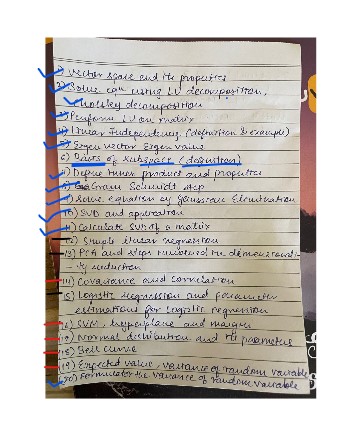 1) Vector space and its properties
2) Solve eqn using LU decomposition,
cholesky decomposition
3) Perform LU on matrix
4) Linear Independency (definition & example)
5) Eigen vector Eigen value
6) of subspace (definition)
7) Define inner product and properties
8) Gram Schmidt step
9) Solve equation by Gaussian Elimination
10) SVD and application
11) Calculate SVD of a matrix
12) Simple linear regression
13) PCA and steps involved in dimensionali-
ty reduction
14) Covariance and correlation
15) Logistic regression and parameter
estimations for logistic regression
16) SVM, hyperplane and margin
17) Normal distribution and its parameter
18) Bell curve
19) Expected value, variance of random variable
20) Formulate the variance of random variable